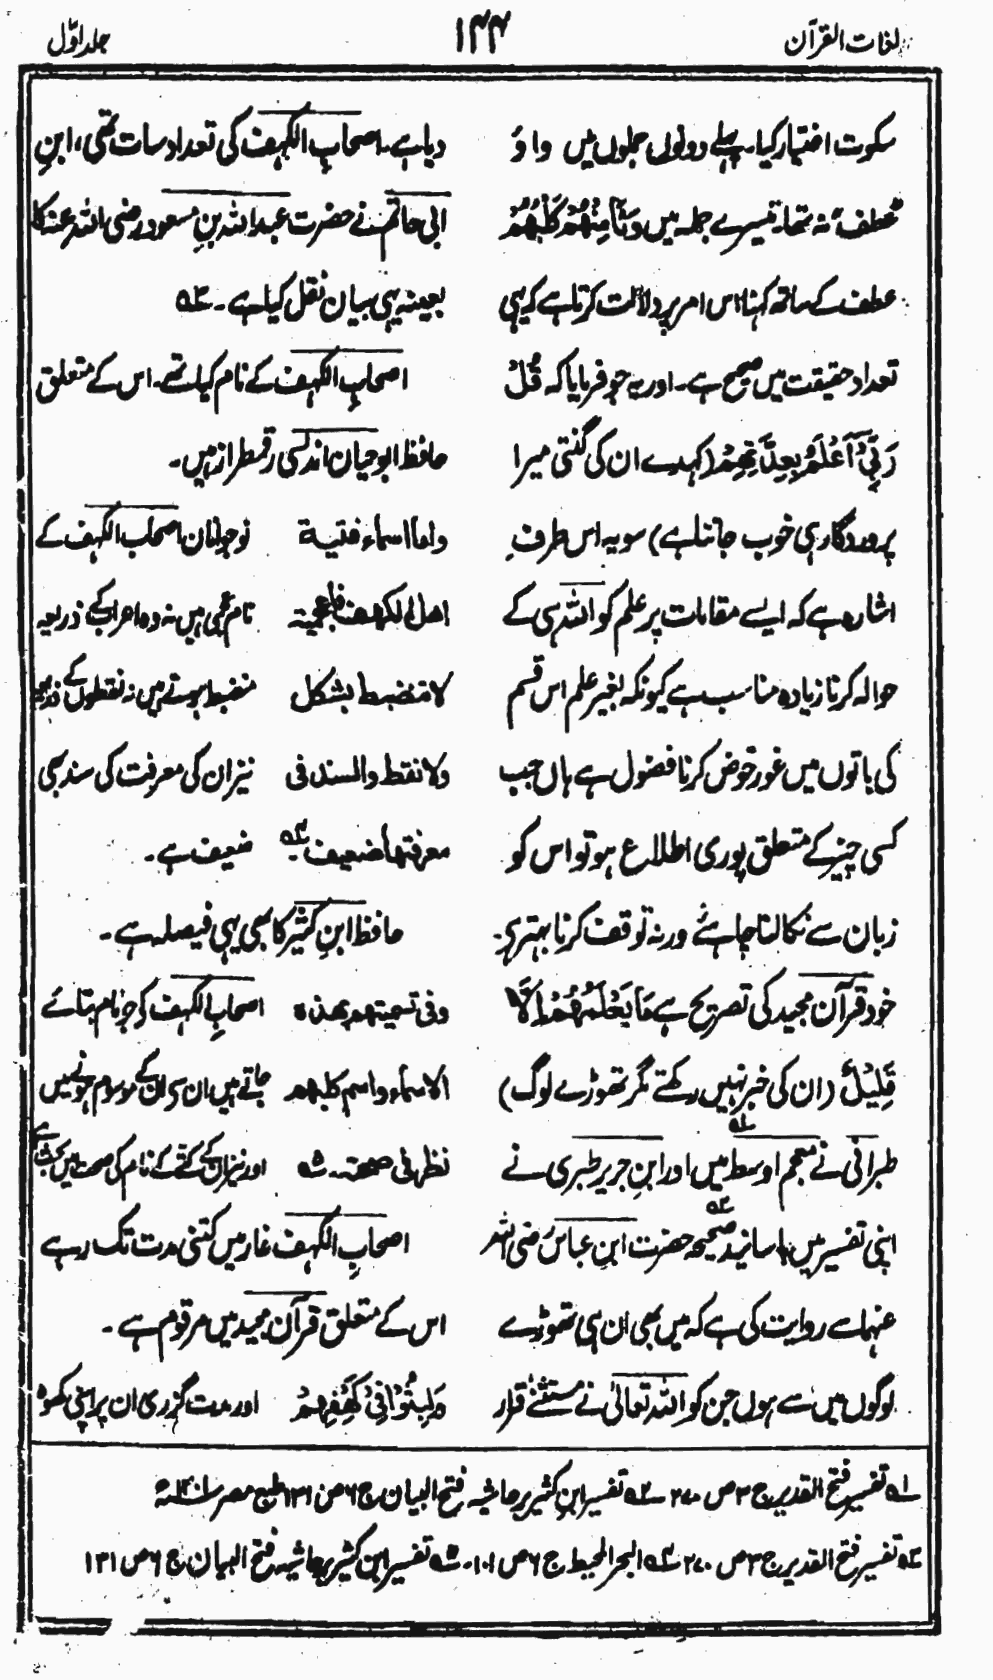 لغات القرآن
۱۴۴
جلد اوّل
سکوت اختیار کیا۔ پہلے دونوں جملوں میں واؤ
عطف نہ تھا۔ تیسرے جملہ میں وَثَامِنُهُمْ كَلْبُهُمْ
عطف کے ساتھ کہنا اس امر پر دلالت کرتا ہے کہ یہی
تعداد حقیقت میں صحیح ہے۔ اور یہ جو فرمایا کہ قُلْ
رَبِّيْ اَعْلَمُ بِعِدَّتِهِمْ (کہدے ان کی گنتی میرا
پروردگار ہی خوب جانتا ہے) سو یہ اس طرف
اشارہ ہے کہ ایسے مقامات پر علم کو اللہ ہی کے
حوالہ کرنا زیادہ مناسب ہے کیونکہ بغیر علم اس قسم
کی باتوں میں غور و خوض کرنا فضول ہے ہاں جب
کسی چیز کے متعلق پوری اطلاع ہو تو اس کو
زبان سے نکالنا چاہئے ورنہ توقف کرنا بہتر ہے۔
خود قرآن مجید کی تصریح ہے مَا يَعْلَمُهُمْ اِلَّا
قَلِيْلٌ (ان کی خبر نہیں رکھتے مگر تھوڑے لوگ)
طبرانی نے معجم اوسط میں لہ اور ابن جریر طبری نے
اپنی تفسیر میں باسانید صحیحہ ۲ہ حضرت ابن عباس رضی اللہ
عنہما سے روایت کی ہے کہ میں بھی ان ہی تھوڑے
لوگوں میں سے ہوں جن کو اللہ تعالٰی نے مستثنٰے قرار
دیا ہے۔ اصحاب الکہف کی تعداد سات تھی، ابن
ابی حاتم نے حضرت عبداللہ بن مسعود رضی اللہ عنہ کا
بعینہ یہی بیان نقل کیا ہے۔ ۳ہ
اصحاب الکہف کے نام کیا تھے۔ اس کے متعلق
حافظ ابو حیان اندلسی رقمطراز ہیں۔
واما اسماء فتية نوجوانان اصحاب الکہف کے
اهل الكهف فاعجمية نام عجمی ہیں نہ وہ اعراب کے ذریعہ
لا تنضبط بشكل منضبط ہوتے ہیں نہ نقطوں کے ذریعہ
ولا نقط والسند فى نیز ان کی معرفت کی سند بھی
معرفتها ضعيف ۴ہ ضعیف ہے۔
حافظ ابن کثیر کا بھی یہی فیصلہ ہے۔
وفى تسميتهم بهذه اصحاب الکہف کے جو نام بتائے
الاسماء واسم كلبهم جاتے ہیں ان سے ان کے موسوم ہونے میں
نظر فى صحته۔ ۵ہ اور نیز ان کے کتے کے نام کی صحت میں بحث ہے
اصحاب الکہف غار میں کتنی مدت تک رہے
اس کے متعلق قرآن مجید میں مرقوم ہے۔
وَلَبِثُوْا فِيْ كَهْفِهِمْ اور مدت گزری ان پر اپنی کھوہ
لہ تفسیر فتح القدیر ج ۳ ص ۲۷۰ ۲ہ تفسیر ابن کثیر بر حاشیہ فتح البیان ج ۶ ص ۱۳۱ طبع مصر
۳ہ تفسیر فتح القدیر ج ۳ ص ۲۷۰ ۴ہ البحر المحیط ج ۶ ص ۱۰۱۔ ۵ہ تفسیر ابن کثیر بر حاشیہ فتح البیان ج ۶ ص ۱۳۱